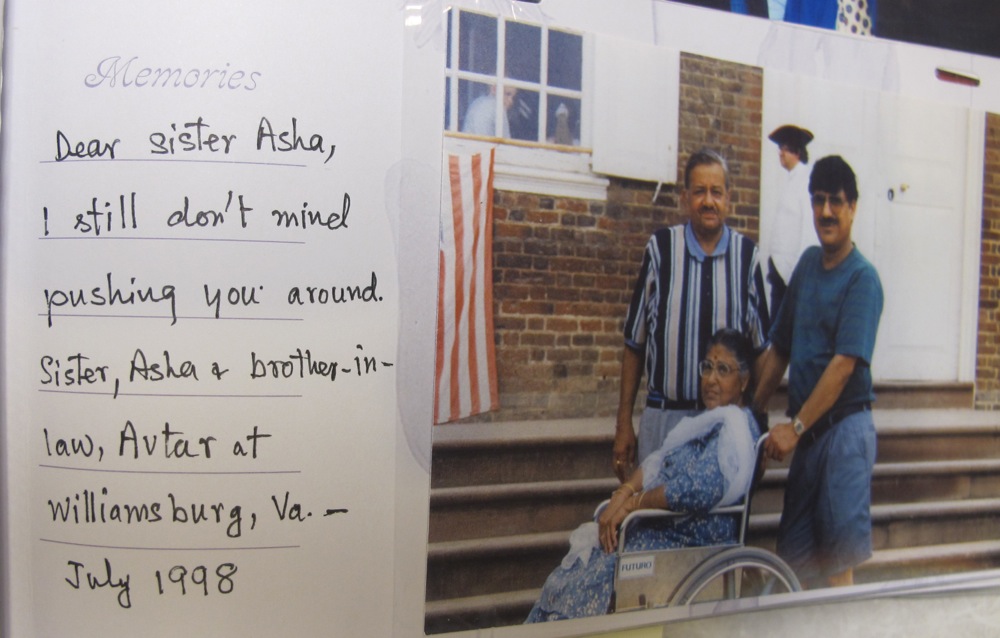 Memories
Dear sister Asha,
I still don't mind
pushing you around.
Sister, Asha & brother-in-
law, Avtar at
Williamsburg, Va. —
July 1998
FUTURO